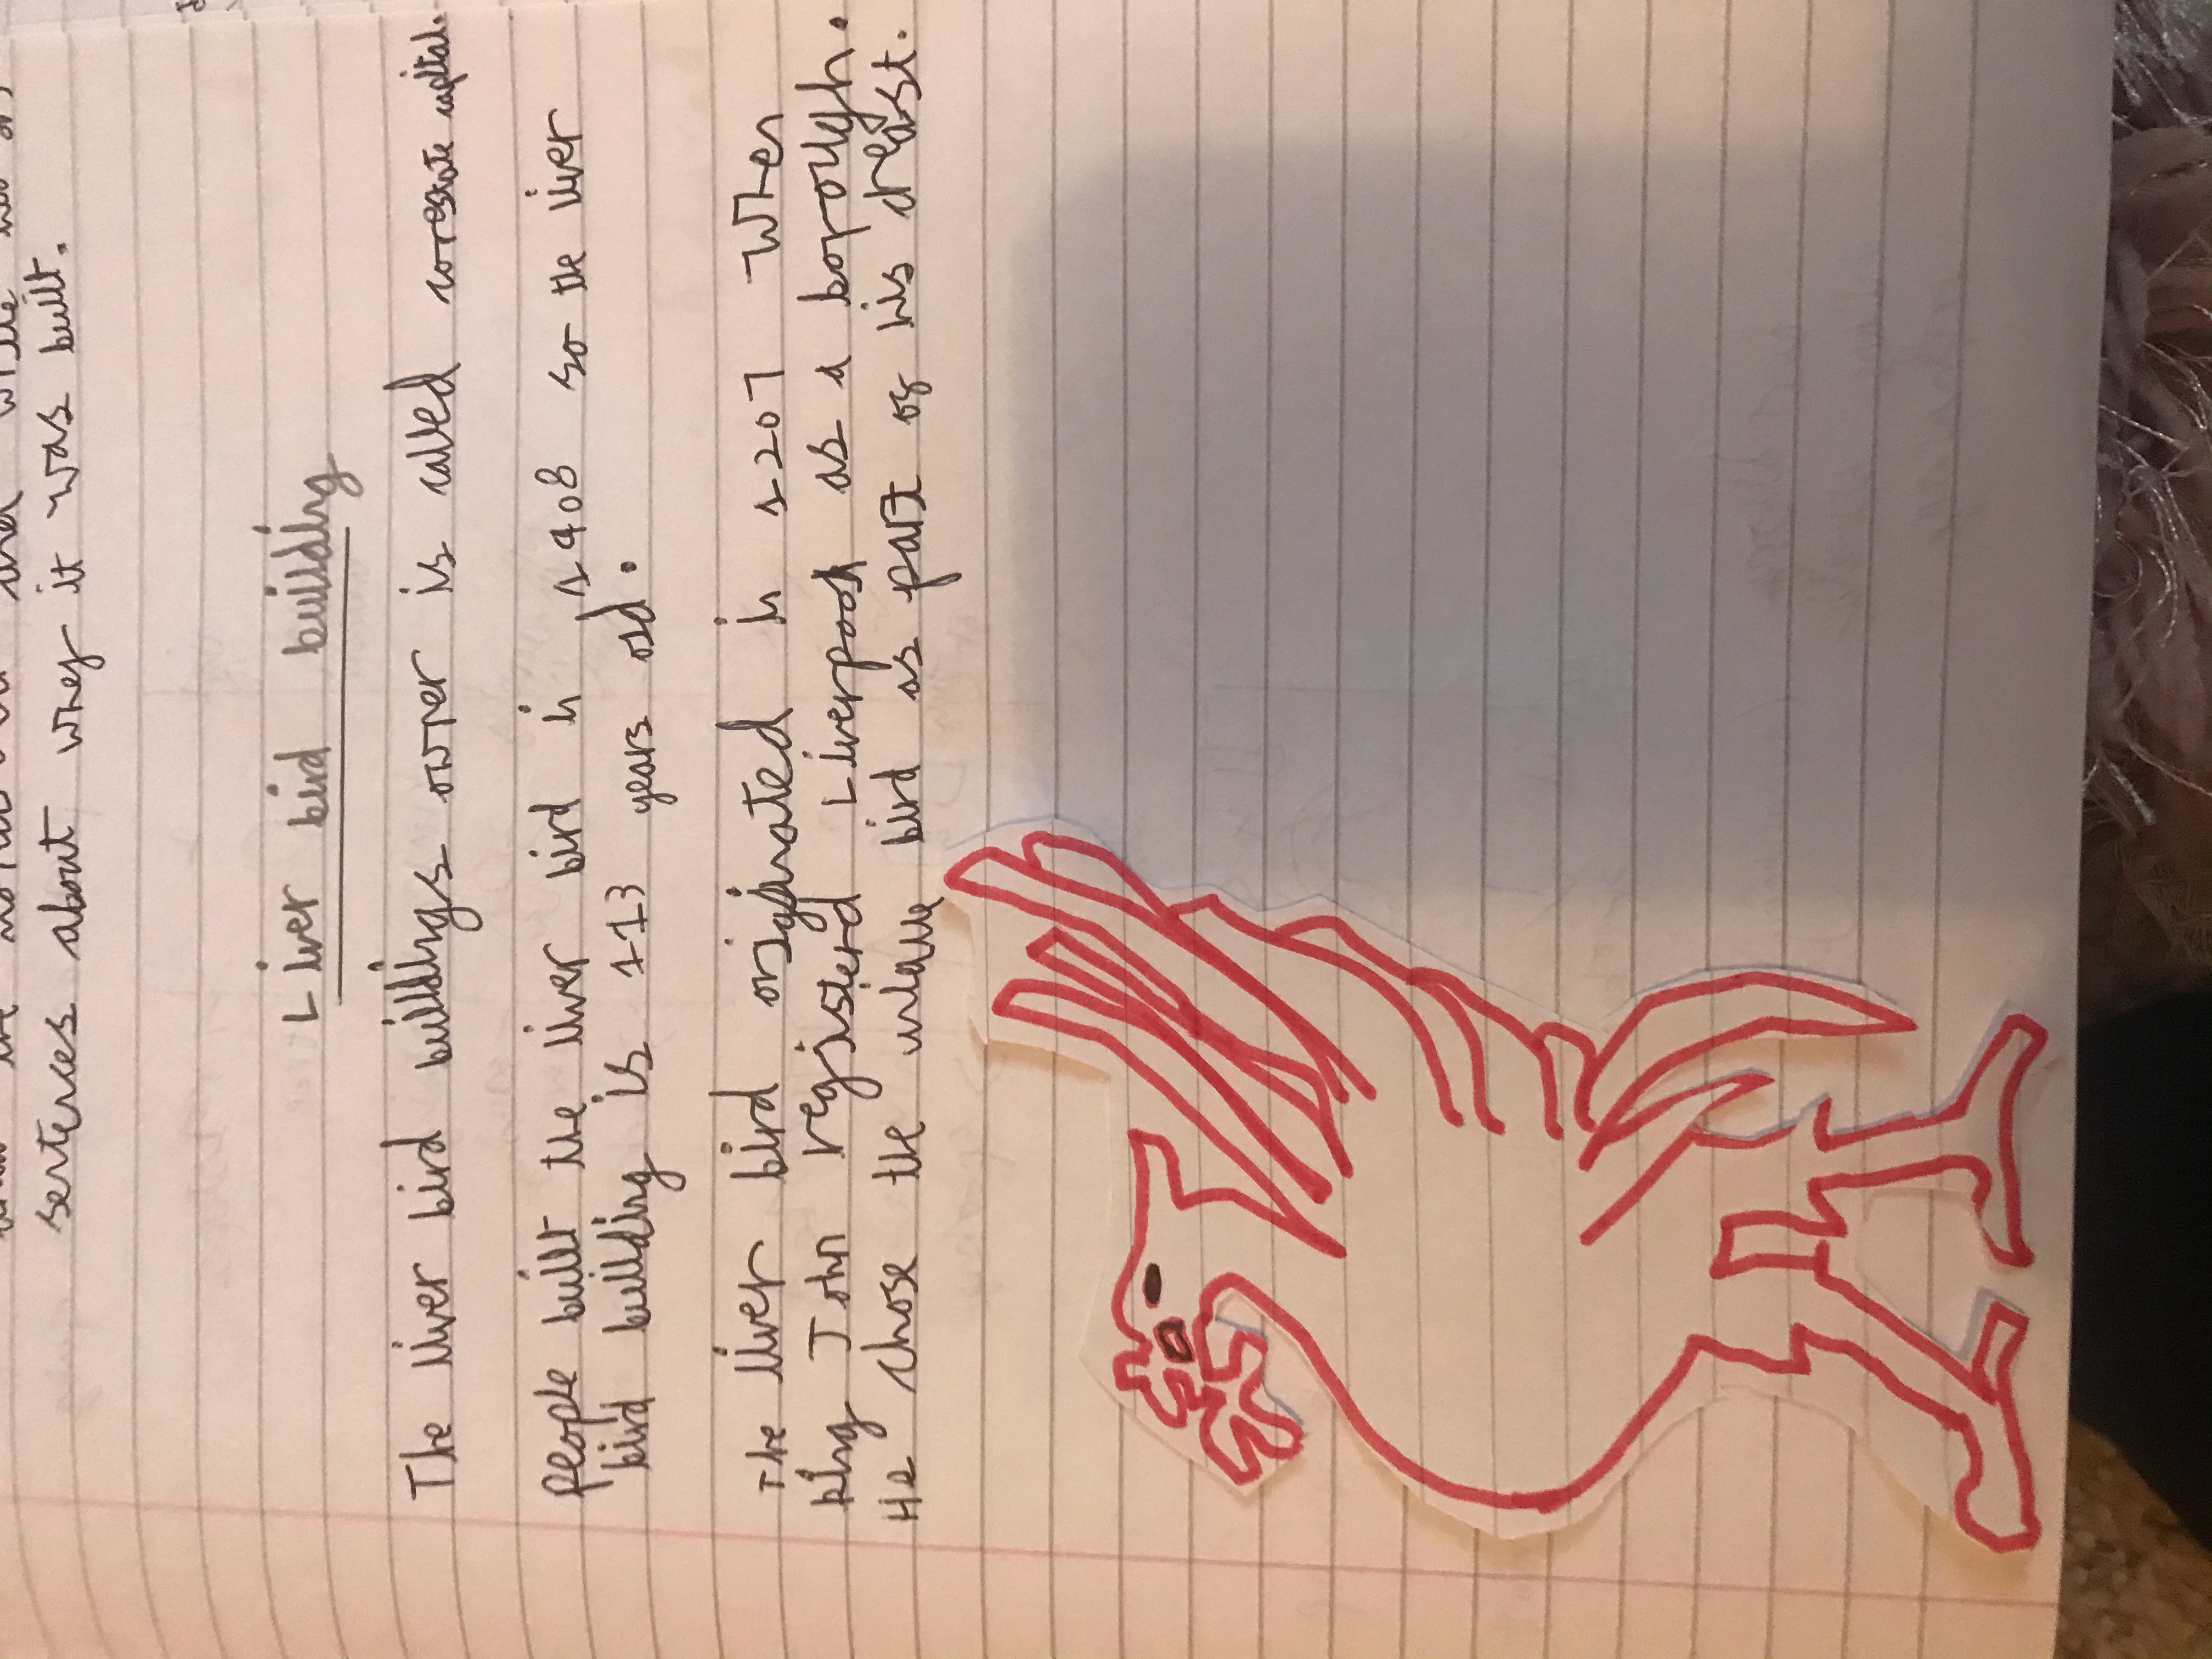 sentences about why it was built.
Liver bird building
The liver bird buildings owner is called corestate capital.
people built the liver bird in 1908 so the liver
bird building is 113 years old.
The liver bird originated in 1207 when
king John registerd Liverpool as a borough.
He chose the unique bird as part of his creast.